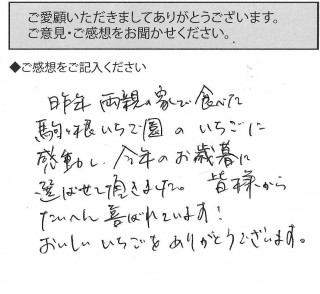 ご愛顧いただきましてありがとうございます。
ご意見・ご感想をお聞かせください。
◆ご感想をご記入ください
昨年 両親の家で食べた
駒ヶ根いちご園のいちごに
感動し、今年のお歳暮に
選ばせて頂きました。皆様から
たいへん喜ばれています!
おいしいいちごをありがとうございます。